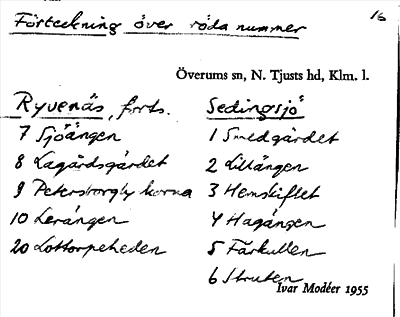 Förteckning över röda nummer
16
Överums sn, N. Tjusts hd, Klm. l.
Ryvenäs, forts.
7 Sjöängen
8 Lagårdsgärdet
9 Petersborgly karna
10 Lerängen
20 Lottorpeheden
Sedingsjö
1 Smedgärdet
2 Lillängen
3 Hemskiftet
4 Hagängen
5 Fårkullen
6 Struten
Ivar Modéer 1955